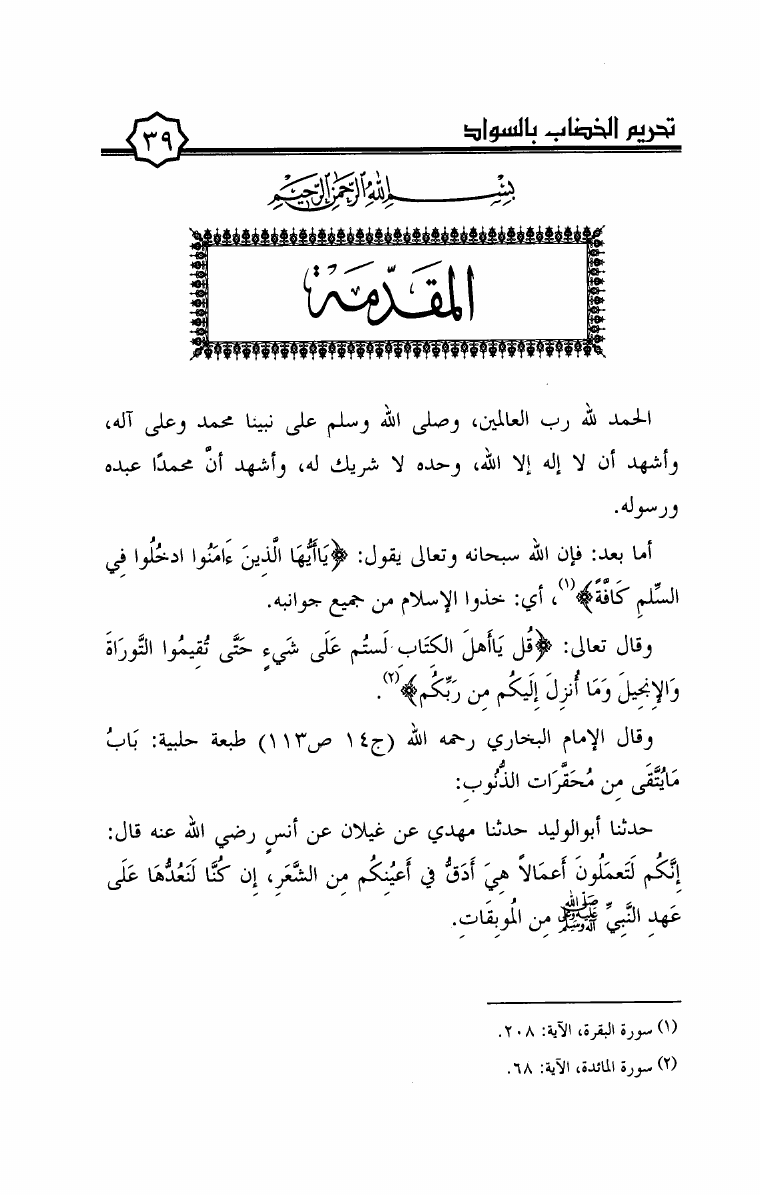 تحريم الخضاب بالسواد
٣٩
بسم الله الرحمن الرحيم
المقدّمة
الحمد لله رب العالمين، وصلى الله وسلم على نبينا محمد وعلى آله،
وأشهد أن لا إله إلا الله، وحده لا شريك له، وأشهد أنَّ محمدًا عبده
ورسوله.
أما بعد: فإن الله سبحانه وتعالى يقول: ﴿يَاأَيُّهَا الَّذِينَ ءَامَنُوا ادخُلُوا فِي
السِّلمِ كَافَّةً﴾(١)، أي: خذوا الإسلام من جميع جوانبه.
وقال تعالى: ﴿قُل يَاأَهلَ الكِتَابِ لَستُم عَلَى شَيءٍ حَتَّى تُقِيمُوا التَّورَاةَ
وَالإِنجِيلَ وَمَا أُنزِلَ إِلَيكُم مِن رَبِّكُم﴾(٢).
وقال الإمام البخاري رحمه الله (ج١٤ ص١١٣) طبعة حلبية: بَابُ
مَايُتَّقَى مِن مُحَقَّرَات الذُّنُوبِ:
حدثنا أبوالوليد حدثنا مهدي عن غيلان عن أنسٍ رضي الله عنه قال:
إِنَّكُم لَتَعمَلُونَ أَعمَالاً هِيَ أَدَقُّ فِي أَعيُنِكُم مِن الشَّعَرِ، إِن كُنَّا لَنَعُدُّهَا عَلَى
عَهدِ النَّبِيِّ ﷺ مِن المُوبِقَاتِ.
(١) سورة البقرة، الآية: ٢٠٨.
(٢) سورة المائدة، الآية: ٦٨.